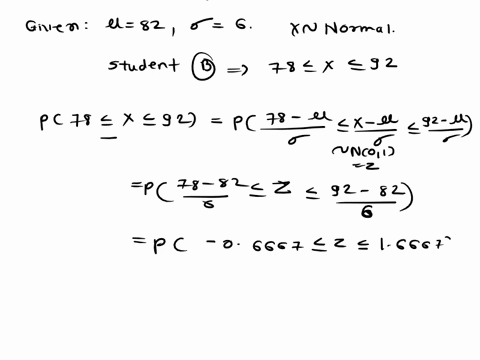 Given: μ = 82, σ = 6. X~ Normal.
student B => 78 ≤ x ≤ 92
P( 78 ≤ x ≤ 92) = P( (78 - μ)/σ ≤ (x - μ)/σ ≤ (92 - μ)/σ )
~N(0,1)
= Z
= P( (78 - 82)/6 ≤ Z ≤ (92 - 82)/6 )
= P( - 0.6667 ≤ z ≤ 1.6667)